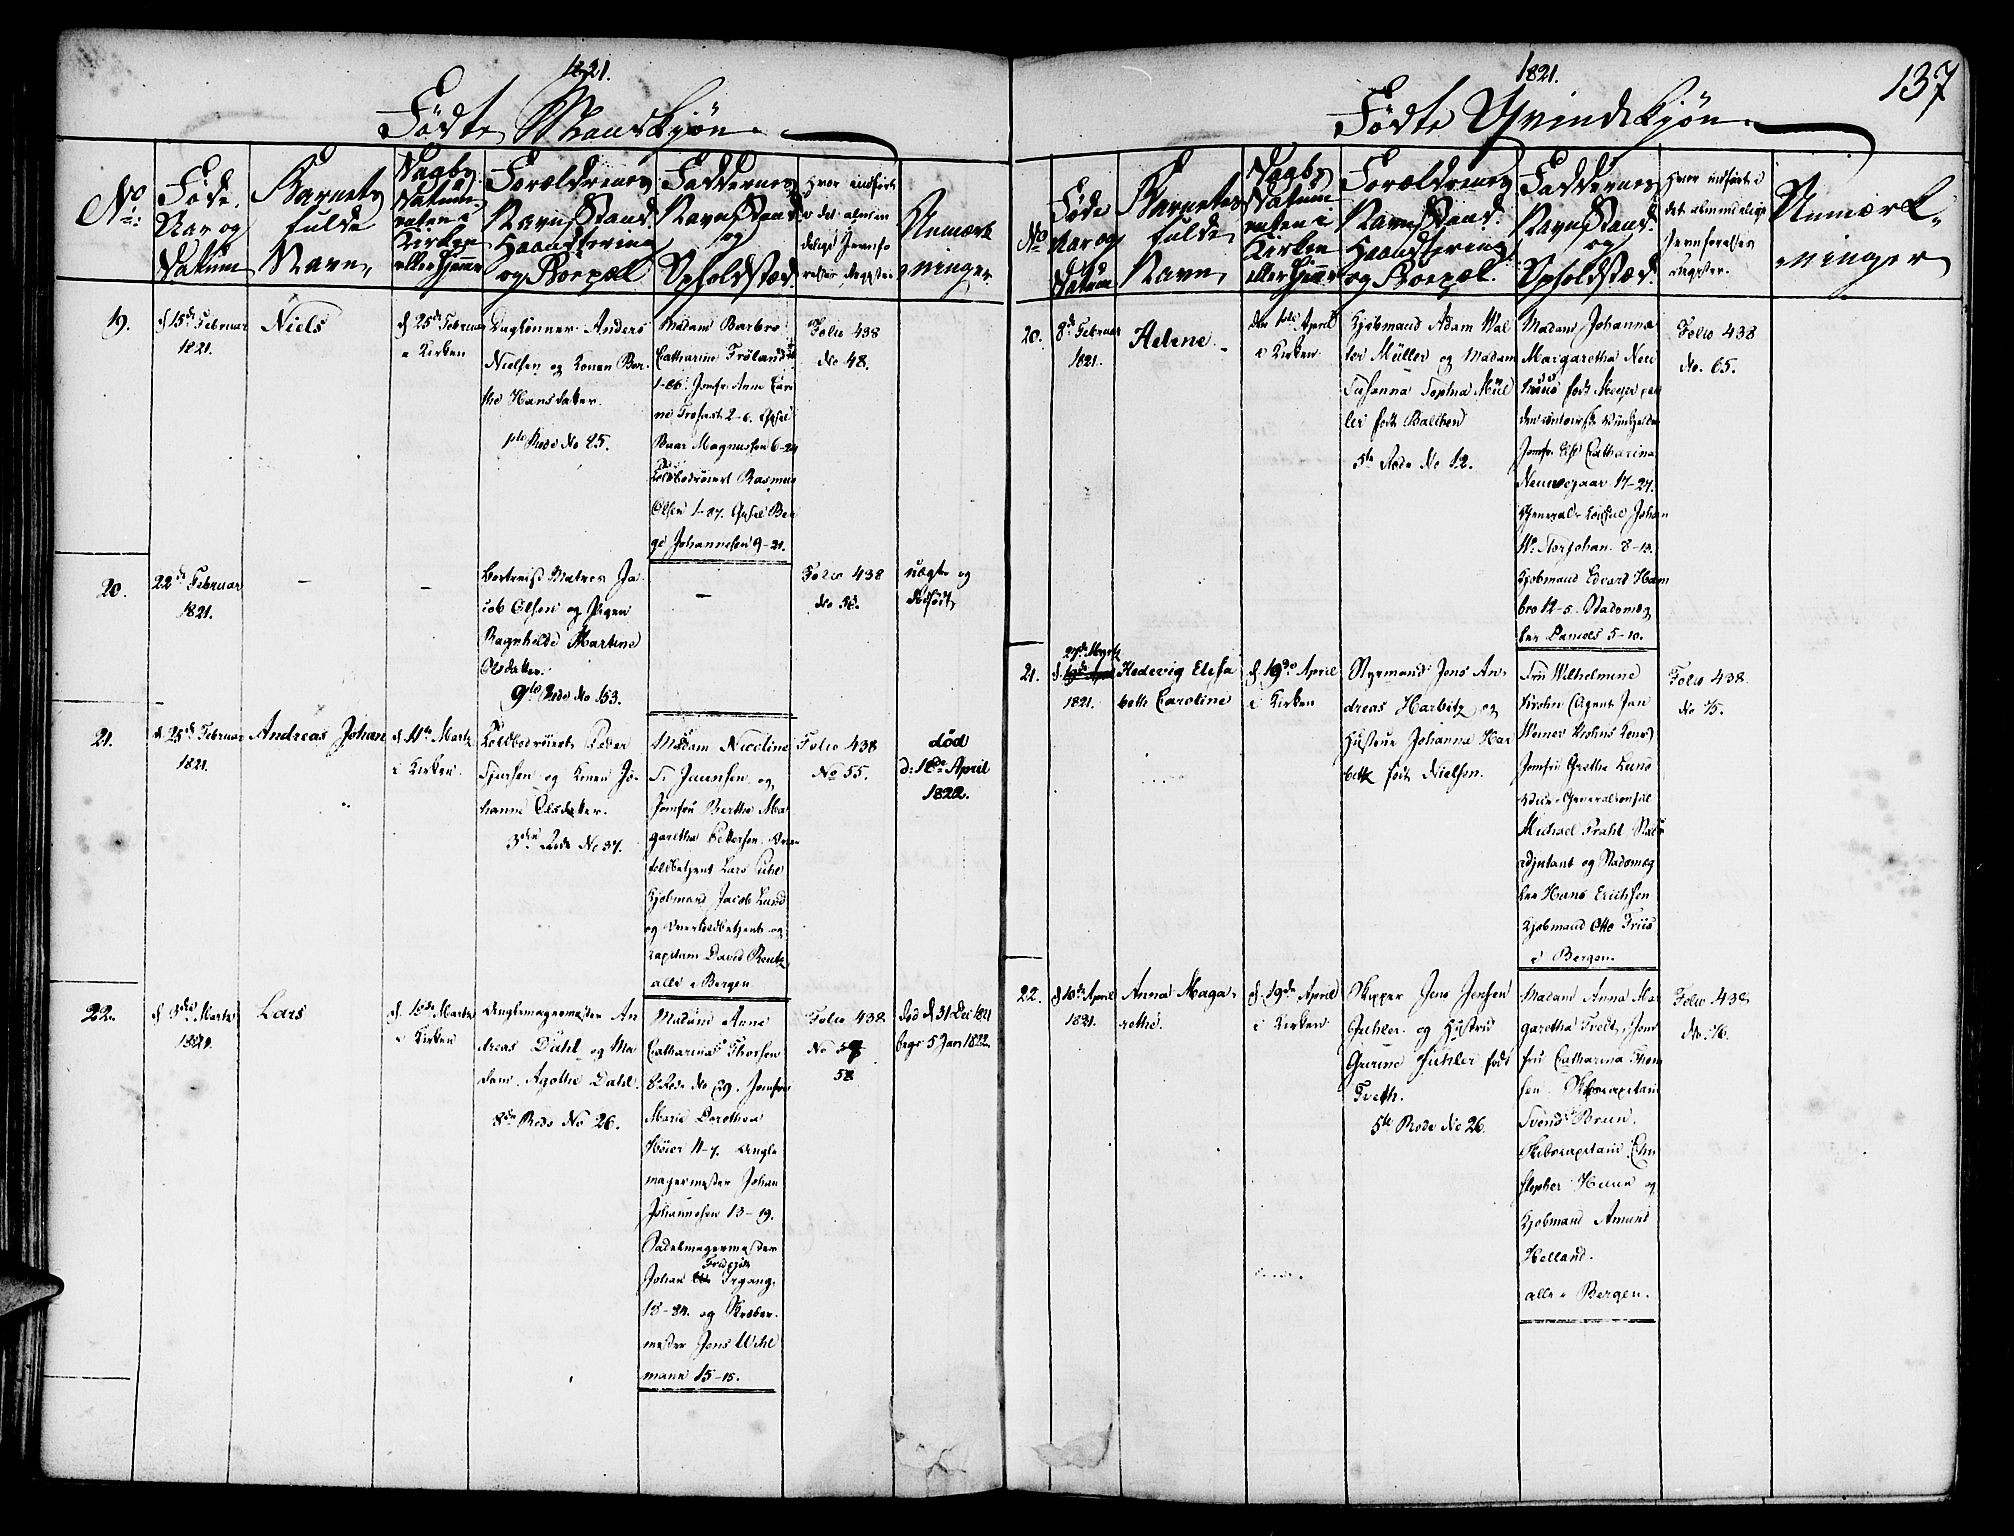 1821.
Fødte Mandkjøn.
No:
Føde
Aar og
Datum
Barnets
fulde
Navn,
Daabs
Datum
enten i
Kirken
eller Hjemme
Forældrenes
Navn, Stand
Haandtering
og Boepæl
Faddernes
Navn, Stand
og
Opholdsted.
Hvor indført
i det almin
delige Jevnfø
relses Register
Anmærk
ninger
19.
d 15de Februar
1821.
Niels
d 25de Februar
i Kirken
Daglønner Anders
Nielsen og Konen Ber
the Hansdatter.
1ste Rode No 25.
Madam Barbro
Catharine Frøland
1-86. Jomfr. Anne Cari
ne Trofast 2-6.
Baar Magnussen 6-24
Rasmus
Olsen 1-87. Ber
ge Johannesen 9-21.
Folio 438
No 48.
20.
22de Februar
1821.
–
–
Matros Ja
cob Olsen og Pigen
Ragnhilde Martine
Olsdatter.
9de Rode No 153.
–
Folio 438
No 50.
uægte og
dødfødt
21.
d 25de Februar
1821.
Andreas Johan
d 11te Martz
i Kirken
Peder
Siursen og Konen Jo
hanne Olsdatter.
3die Rode No 37.
Madam Nicoline
S. Jaunsen og
Jomfru Berthe Ma
garetha Pettersen
toldbetjent Lars
Kjøbmand Jacob Lund
og Overtoldbetjent og
Capitain David
alle i Bergen
Folio 438
No 55.
død
d: 16de April
1822.
22.
d 3die Martz
1821.
Lars
d. 18de Martz
i Kirken
An
dreas Dahl og Ma
dam Agathe Dahl.
8de Rode No 26.
Madam Anne
Catharina Thorsen
8 Rode No 29. Jomfru
Marie Dorothea
Høier 11-7.
magermester Johan
Johannesen 13-19.
Sadelmagermester
Fridrich
Johan Irgang
18-84. og
mester Jens Uchl
mann 15-15.
Folio 438
No 57
58
død d 31 Dec 1821
begr 5 Jan 1822
1821.
137
Fødte Qvindekjøn.
No
Føde
Aar og
Datum
Barnets
fulde
Navn,
Daabs
Datum
enten i
Kirken
eller Hjemme
Forældrenes
Navn, Stand
Haandtering
og Boepæl.
Faddernes
Navn, Stand
og
Opholdsted.
Hvor indført i
det almindelige
Jevnførelses
Register.
Anmærk-
ninger
20.
8de Februar
1821.
Helene
den 1ste April
i Kirken
Kjøbmand Adam Wal
ter Müller og Madam
Susanna Sophia Mül
ler født Balchen
5te Rode No 12.
Madam Johanna
Margaretha Neu
født Meyer, paa
Jomfr. Catharina
Neuwegaar 17-27.
General-Consul Johan
Storjohan 8-13.
Kjøbmand Edvard Ham
bro 12-5. Stadsmæg
ler Daniels 5-10.
Folio 438
No. 65.
21.
27de Martz
d 19de April
1821.
Hedevig Elisa
beth Caroline
d. 19de April
i Kirken
Styrmand Jens An
dreas Harbitz og
Hustrue Johanna Har
bitz født Nielsen.
Fru Wilhelmine
Krohn (Agent Jan
Werner Krohns Kone)
Jomfru Grethe Lund
Generalconsul
Michael Prahl
adjutant og Stadsmæg
ler Hans Erichsen
Kjøbmand Otto Friis
i Bergen.
Folio 438.
No 75.
22.
d 10de April
1821.
Anna Maga-
rethe.
d. 19de April
i Kirken
Skipper Jens Jensen
og Hustru
født
Tveth.
5te Rode No 26
Madam Anna Ma
garetha Tvedt. Jom
fru Catharina Thom
sen. Skibscapitain
Svend Bruun.
Skibscapitain Chri
stopher og
Kjøbmand Amund
Helland.
alle i Bergen.
Folio 438
No. 76.